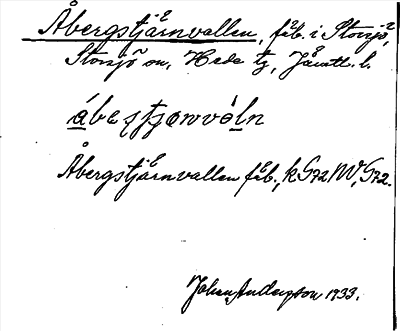 Åbergstjärnvallen, fäb. i Storsjö,
Storsjö sn, Hede tg, Jämtl. l.
Åbergstjärnvallen fäb., k G72 NV, G72.
Johan Anderson 1933.